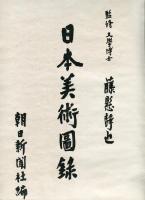 監修 文學博士
藤懸靜也
日本美術圖錄
朝日新聞社編